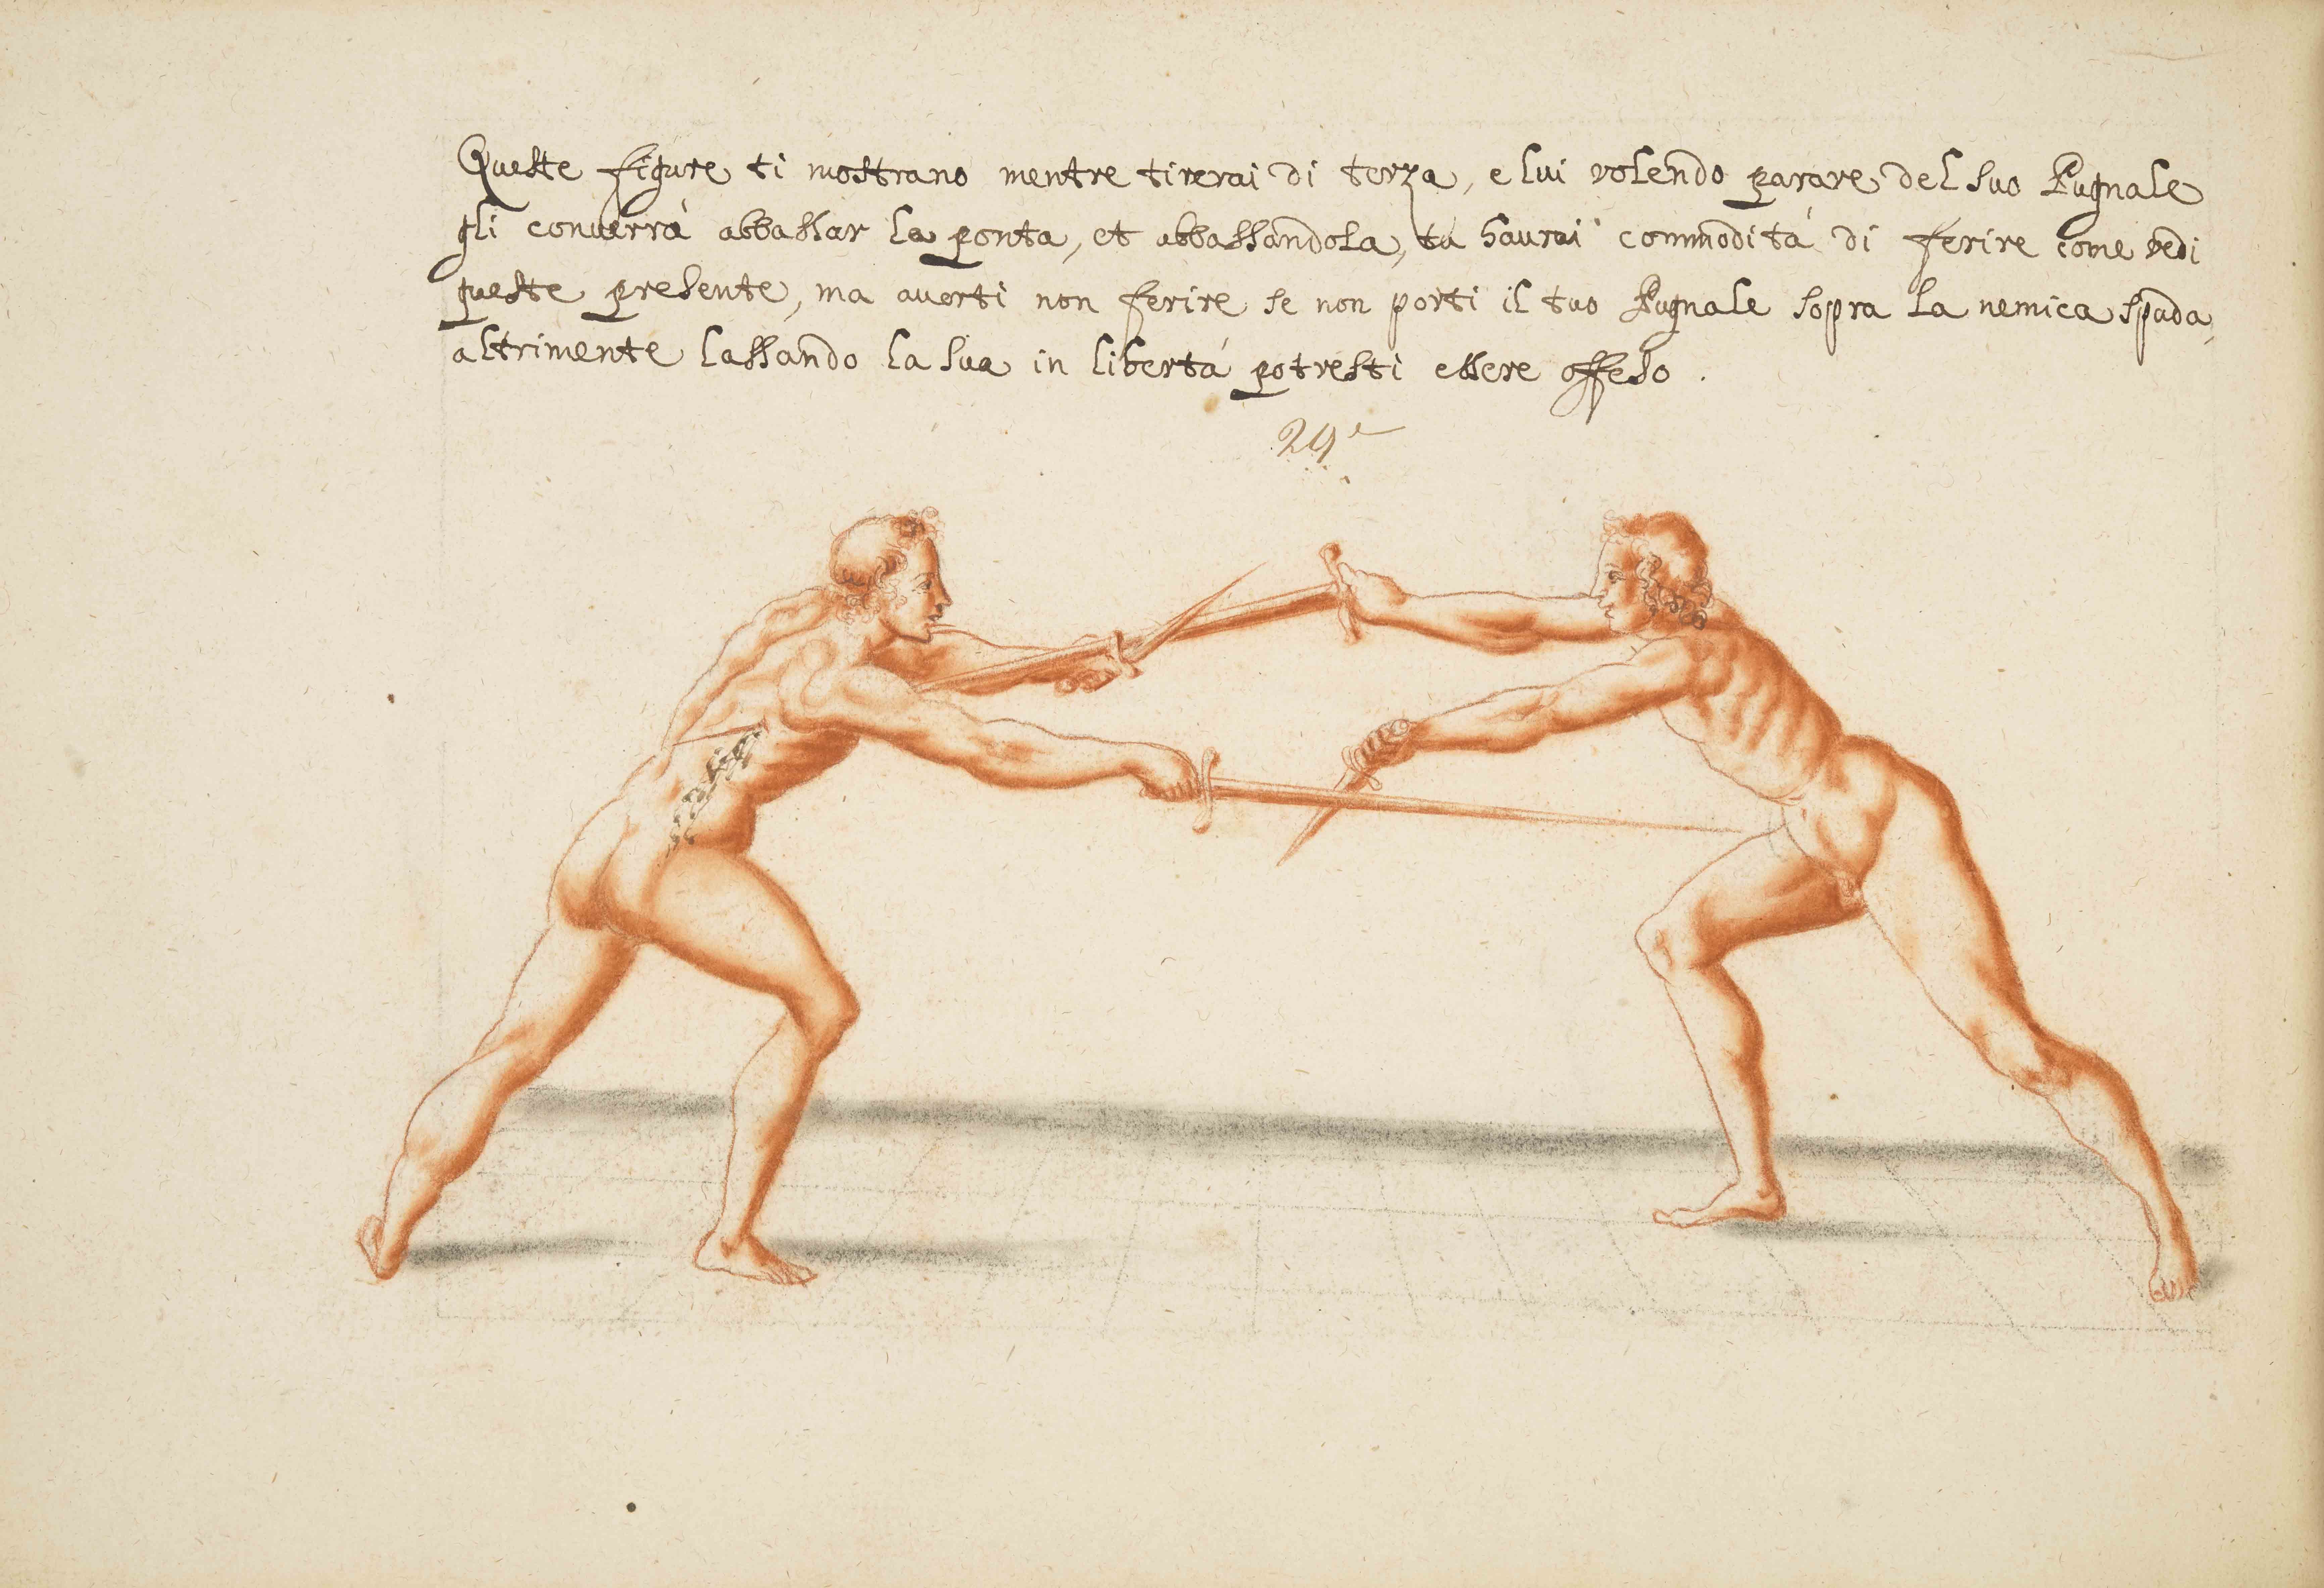 Queste figure ti mostrano mentre tirerai di terza, e lui volendo parare del suo Pugnale
gli conuerrà abbassar la ponta, et abbassandola, tu haurai commodità di ferire come vedi
queste presente, ma auerti non ferire se non porti il tuo Pugnale sopra la nemica spada,
altrimente lassando la sua in libertà potresti essere offeso.